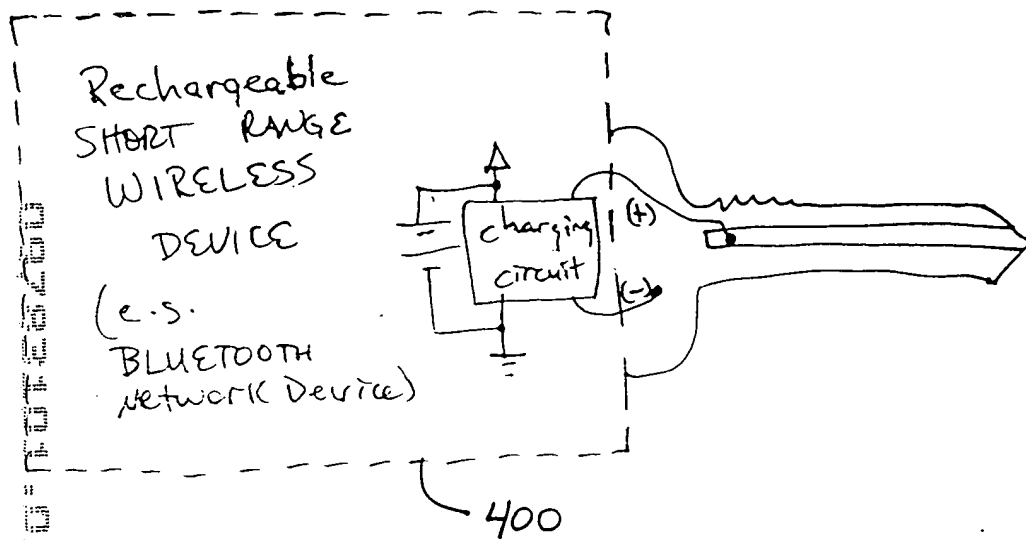 Rechargeable
SHORT RANGE
WIRELESS
DEVICE
(e.g.
BLUETOOTH
Network Device)
charging
circuit
(+)
(-)
400